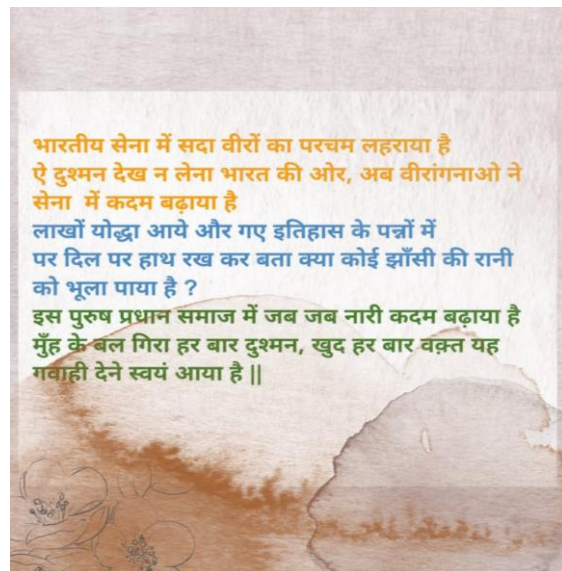 भारतीय सेना में सदा वीरों का परचम लहराया है
ऐ दुश्मन देख न लेना भारत की ओर, अब वीरांगनाओ ने
सेना में कदम बढ़ाया है
लाखों योद्धा आये और गए इतिहास के पन्नों में
पर दिल पर हाथ रख कर बता क्या कोई झाँसी की रानी
को भूला पाया है ?
इस पुरुष प्रधान समाज में जब जब नारी कदम बढ़ाया है
मुँह के बल गिरा हर बार दुश्मन, खुद हर बार वक़्त यह
गवाही देने स्वयं आया है ||